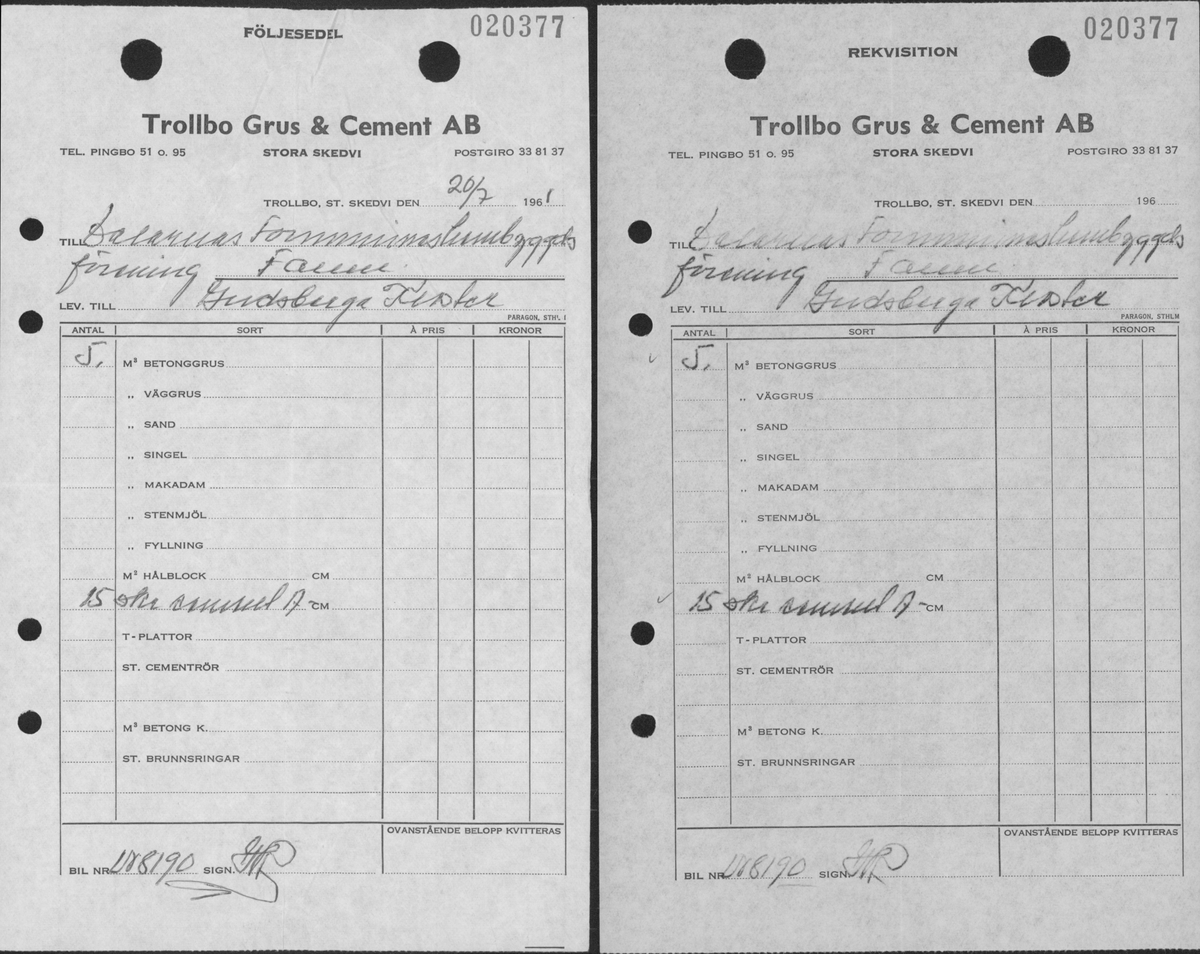 FÖLJESEDEL
020377
Trollbo Grus & Cement AB
TEL. PINGBO 51 o. 95 STORA SKEDVI POSTGIRO 33 81 37
TROLLBO, ST. SKEDVI DEN 20/7 1961
TILL Dalarnas Fornminneshembygds
förening Falun.
LEV. TILL Gudsberga Kloster
PARAGON, STHL
ANTAL SORT À PRIS KRONOR
5. M³ BETONGGRUS
„ VÄGGRUS
„ SAND
„ SINGEL
„ MAKADAM
„ STENMJÖL
„ FYLLNING
M² HÅLBLOCK CM
15 CM
T-PLATTOR
ST. CEMENTRÖR
M³ BETONG K.
ST. BRUNNSRINGAR
OVANSTÅENDE BELOPP KVITTERAS
BIL NR W8190 SIGN.
REKVISITION
020377
Trollbo Grus & Cement AB
TEL. PINGBO 51 o. 95 STORA SKEDVI POSTGIRO 33 81 37
TROLLBO, ST. SKEDVI DEN 196
TILL Dalarnas Fornminneshembygds
förening Falun.
LEV. TILL Gudsberga Kloster
PARAGON, STHLM
ANTAL SORT À PRIS KRONOR
5. M³ BETONGGRUS
„ VÄGGRUS
„ SAND
„ SINGEL
„ MAKADAM
„ STENMJÖL
„ FYLLNING
M² HÅLBLOCK CM
15 CM
T-PLATTOR
ST. CEMENTRÖR
M³ BETONG K.
ST. BRUNNSRINGAR
OVANSTÅENDE BELOPP KVITTERAS
BIL NR W8190 SIGN.